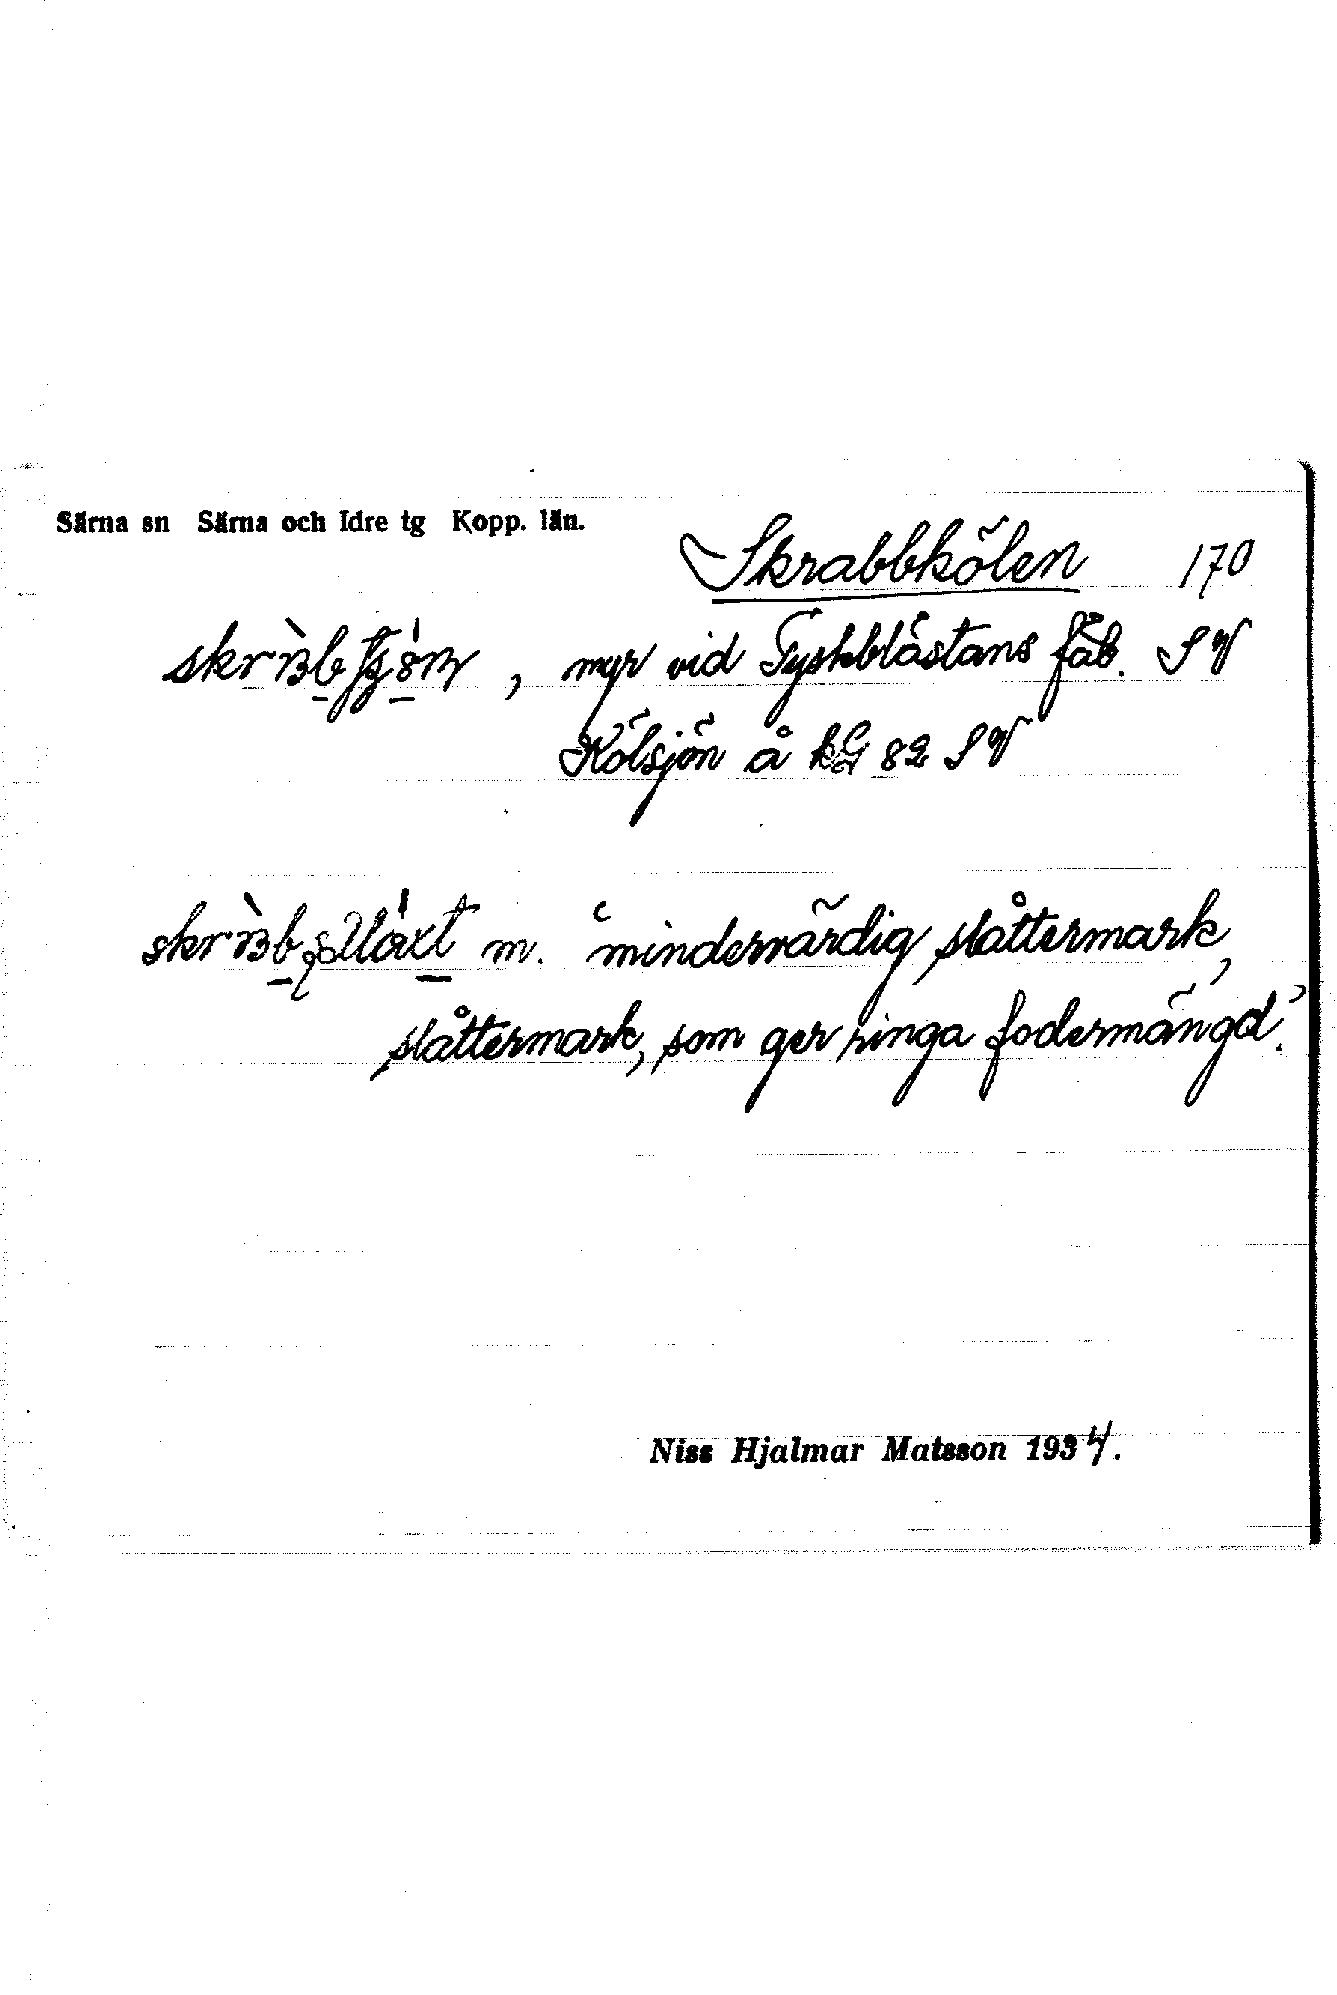 Särna sn Särna och Idre tg Kopp. län.
Skrabbkölen 170
, myr vid Tyskblästans fäb. SV
Kölsjön å kG 82 SV
m. ‘mindervärdig slåttermark,
slåttermark, som ger ringa fodermängd’.
Niss Hjalmar Matsson 1934.